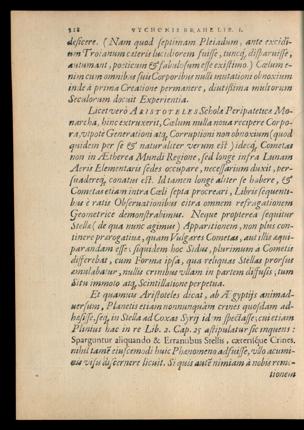 318 TYCHONIS BRAHE LIB. I.
desicere. (Nam quod septimam Pleiadum, ante excidi-
um Troianum cæteris lucidiorem fuisse, tuncq; disparuisse,
autumant, poëticum & fabulosum esse existimo.) Cælum e-
nim cum omnibus suis Corporibus nulli mutationi obnoxium
inde à prima Creatione permanere, diutissima multorum
Seculorum docuit Experientia.
Licet verò ARISTOTELES Scholæ Peripateticæ Mo-
narcha, hinc extruxerit, Cælum nulla noua recipere Corpo-
ra, utpote Generationi atq; Corruptioni non obnoxium (quod
quidem per se & naturaliter verum est) ideoq; Cometas
non in Ætherea Mundi Regione, sed longe infra Lunam
Aeris Elementaris sedes occupare, necessarium duxit, per-
suadereq; conatus est. Id tamen longe aliter se habere, &
Cometas etiam intra Cæli septa procreari, Libris sequenti-
bus è ratis Obseruationibus citra omnem refragationem
Geometricè demonstrabimus. Neque propterea sequitur
Stella (de qua nunc agimus) Apparitionem, non plus con-
tinere prærogatiuæ, quam Vulgares Cometas, aut illis æqui-
parandam esse: siquidem hoc Sidus, plurimum à Cometis
differebat, cum Forma ipsa, qua reliquas Stellas prorsus
æmulabatur, nullis crinibus vllam in partem diffusis; tum
Situ immoto atq; Scintillatione perpetua.
Et quamuis Aristoteles dicat, ab Ægyptijs animad-
uersum, Planetis etiam nonnunquàm crines quosdam ad-
hæsisse, seq; in Stella ad Coxas Syrij idem spectasse; cui etiam
Plinius hac in re Lib. 2. Cap. 25 astipulatur sic inquens:
Sparguntur aliquando & Errantibus Stellis, cæterisque Crines.
nihil tamẽ eiuscemodi huic Phænomeno adfuisse, vllo acumi-
nis visu discernere licuit. Si quis autẽ nimiam à nobis remo-
tionem